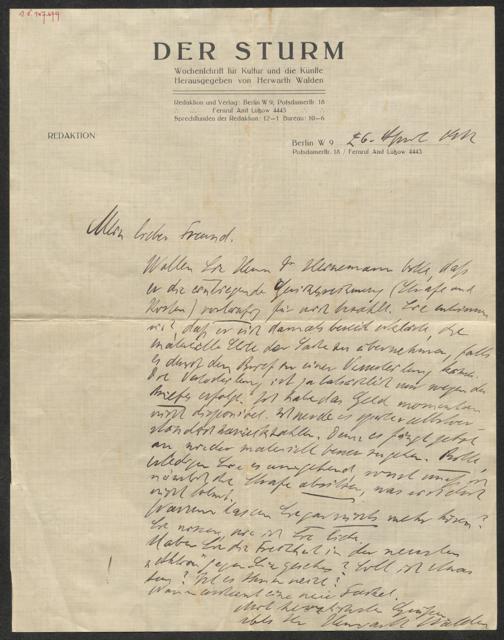 DER STURM
Wochenschrift für Kultur und die Künste
Herausgegeben von Herwarth Walden
Redaktion und Verlag: Berlin W 9, Potsdamerstr. 18
Fernruf Amt Lützow 4443
Sprechstunden der Redaktion: 12—1 Bureau: 10—6
REDAKTION
Berlin W 9 26. April 1912
Potsdamerstr. 18 / Fernruf Amt Lützow 4443
Mein lieber Freund.
Wollen Sie Herrn Dr bitte, daß
er die einliegende (Strafe und
Kosten) vorläufig für mich bezahlt. Sie
daß er sich damals bereit erklärte, die
materielle Seite der Sache zu übernehmen, falls
es durch den Brief zu einer Verurteilung
Die Verurteilung ist ja tatsächlich nur wegen des
Briefes erfolgt. Ich habe das Geld momentan
nicht disponibel. Ich werde es später selbstver-
ständlich zurückzahlen. Denn es fängt jetzt
an mir materiell besser zu gehen. Bitte,
erledigen Sie es umgehend sonst muß ich
die Strafe absitzen, was
nicht lohnt.
Warum lassen Sie garnichts mehr hören?
Sie wissen, wie ich Sie liebe.
Haben Sie die in der neuesten
Aktion gegen Sie gesehen? Soll ich etwas
tun? Ist es Ihnen recht?
Wann erscheint eine neue Fackel.
Grüßen
Ihr Herwarth Walden